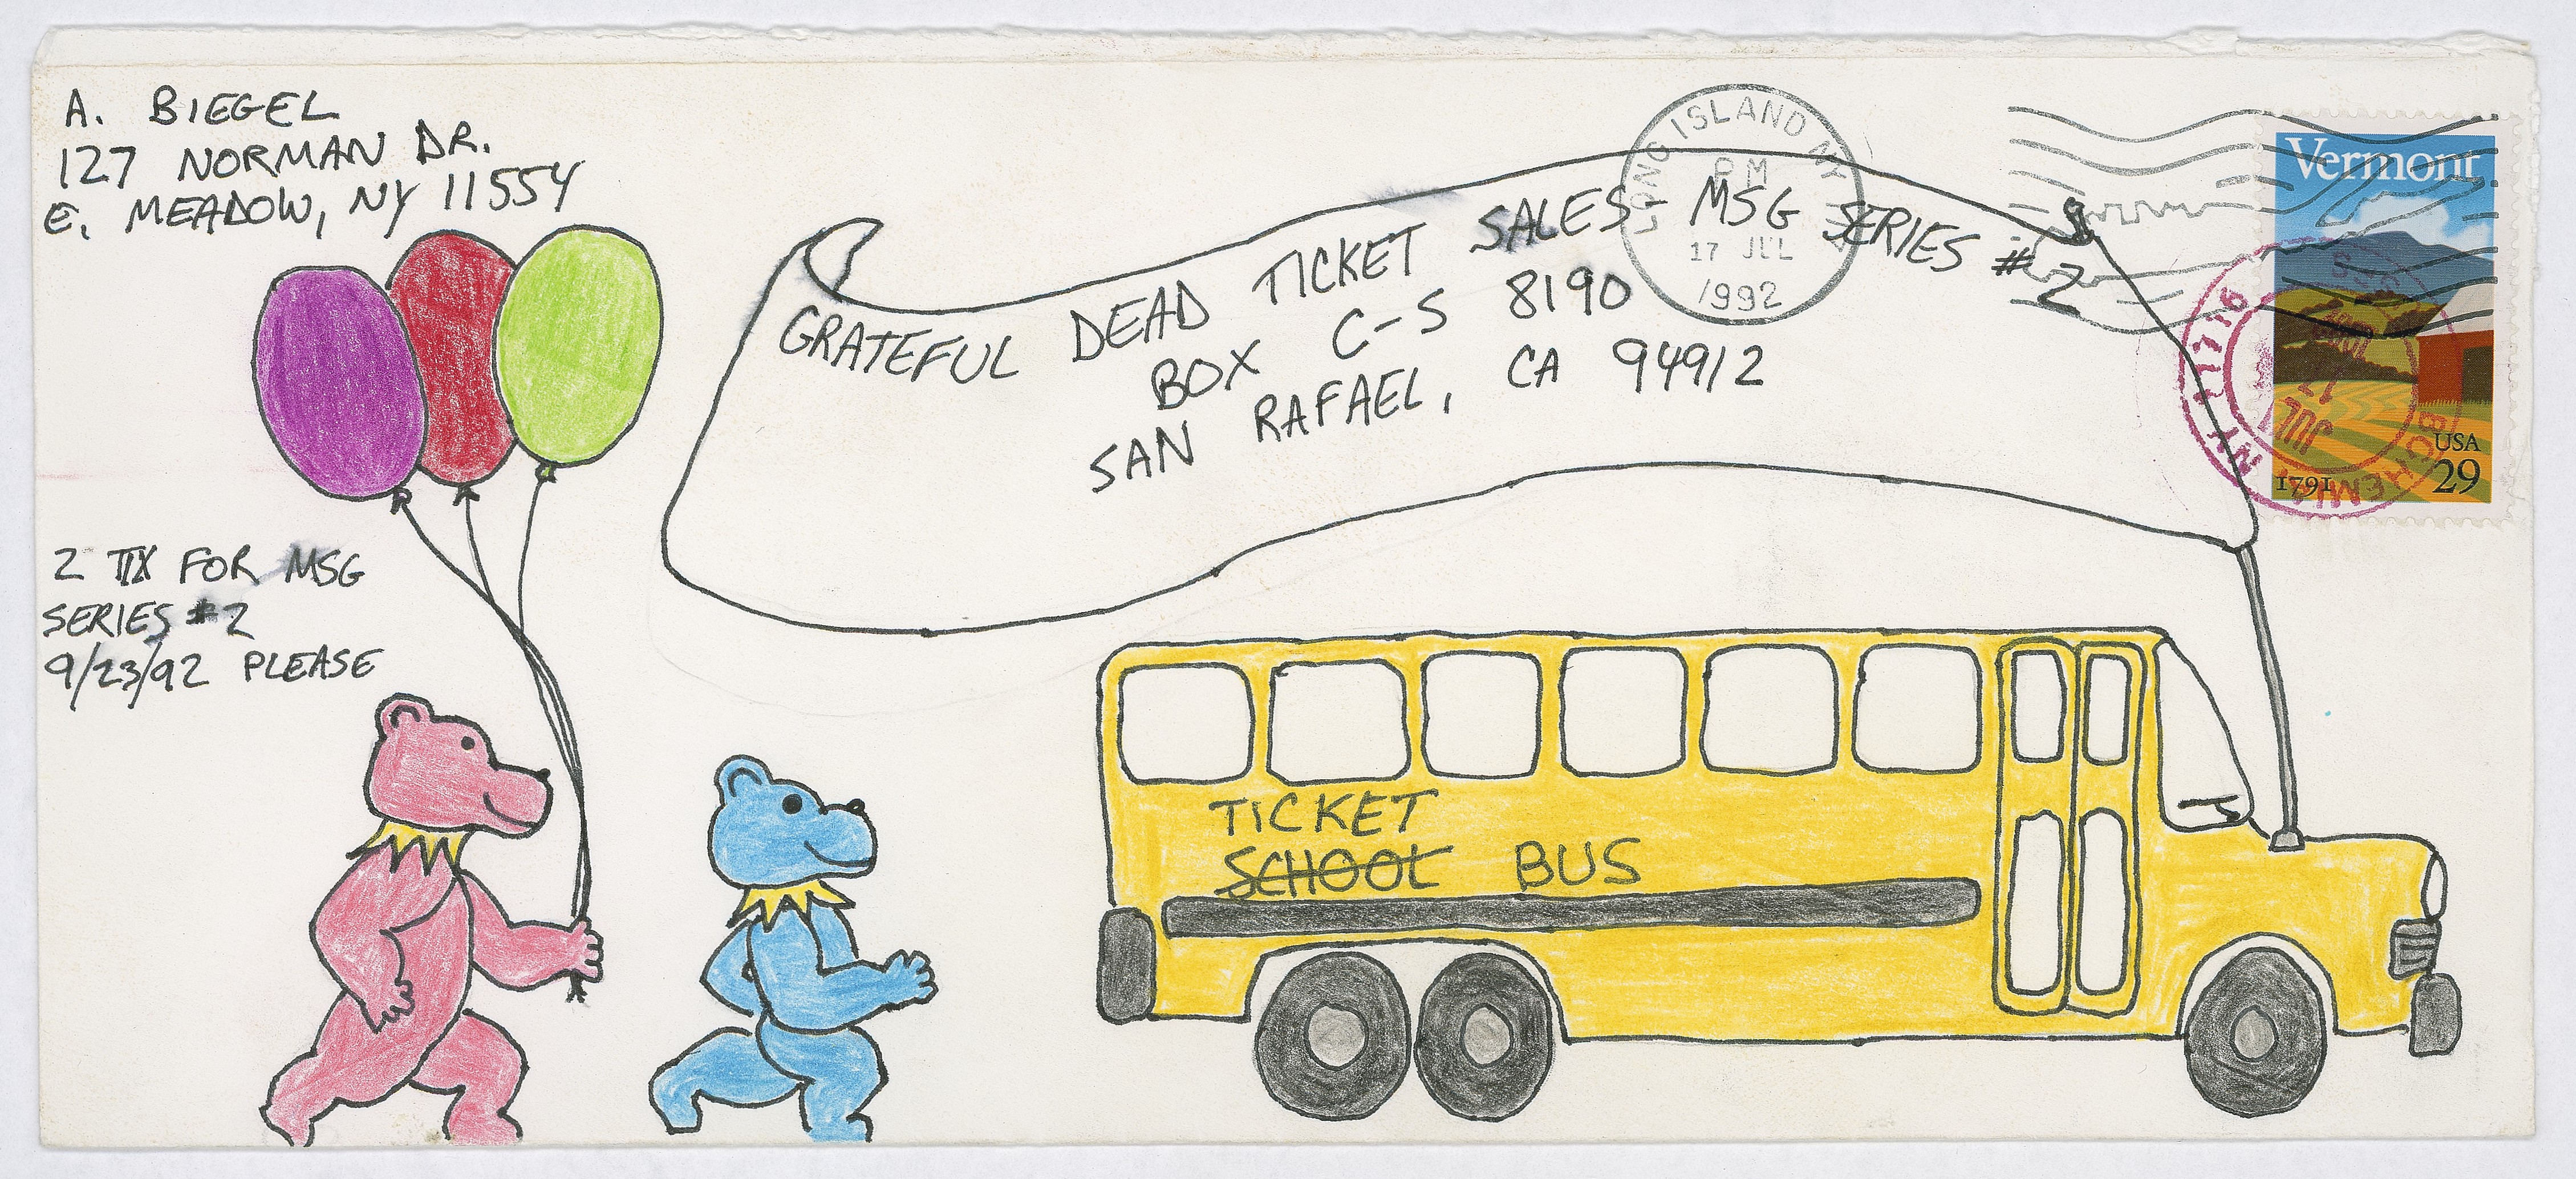 A. BIEGEL
127 NORMAN DR.
E. MEADOW, NY 11554
GRATEFUL DEAD TICKET SALES MSG SERIES # 2
BOX C-S 8190
SAN RAFAEL, CA 94912
LONG ISLAND NY
PM
17 JUL
1992
Vermont
USA
29
1791
JUL
17
2 TIX FOR MSG
SERIES #2
9/23/92 PLEASE
TICKET
SCHOOL BUS